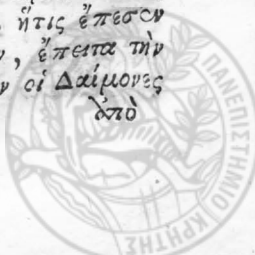 ἥτις ἔπεσεν
, ἔπειτα τὴν
οἱ Δαίμονες
ἀπὸ
ΠΑΝΕΠΙΣΤΗΜΙΟ ΚΡΗΤΗΣ